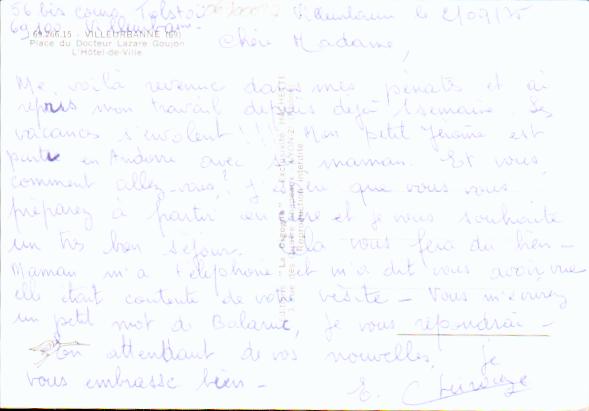 56 bis cours Tolstoï Villeurbanne le 2/09/75
69100 Villeurbanne
69.266.15 - VILLEURBANNE (69)
Place du Docteur Lazare Goujon
L'Hôtel-de-Ville
Chère Madame,
Me voilà revenue dans mes pénates et ai
repris mon travail depuis déjà 1 semaine. Les
vacances s'envolent !!! Mon petit Jérôme est
parti en Andorre avec sa maman. Et vous
comment allez-vous? J'espère que vous vous
préparez à partir en cure et je vous souhaite
un très bon séjour. Cela vous fera du bien -
Maman m'a téléphoné et m'a dit vous avoir vue
elle était contente de votre visite - Vous m'écrirez
un petit mot de Balaruc, je vous répondrai -
En attendant de vos nouvelles, je
vous embrasse bien -
E.
Reproduction interdite